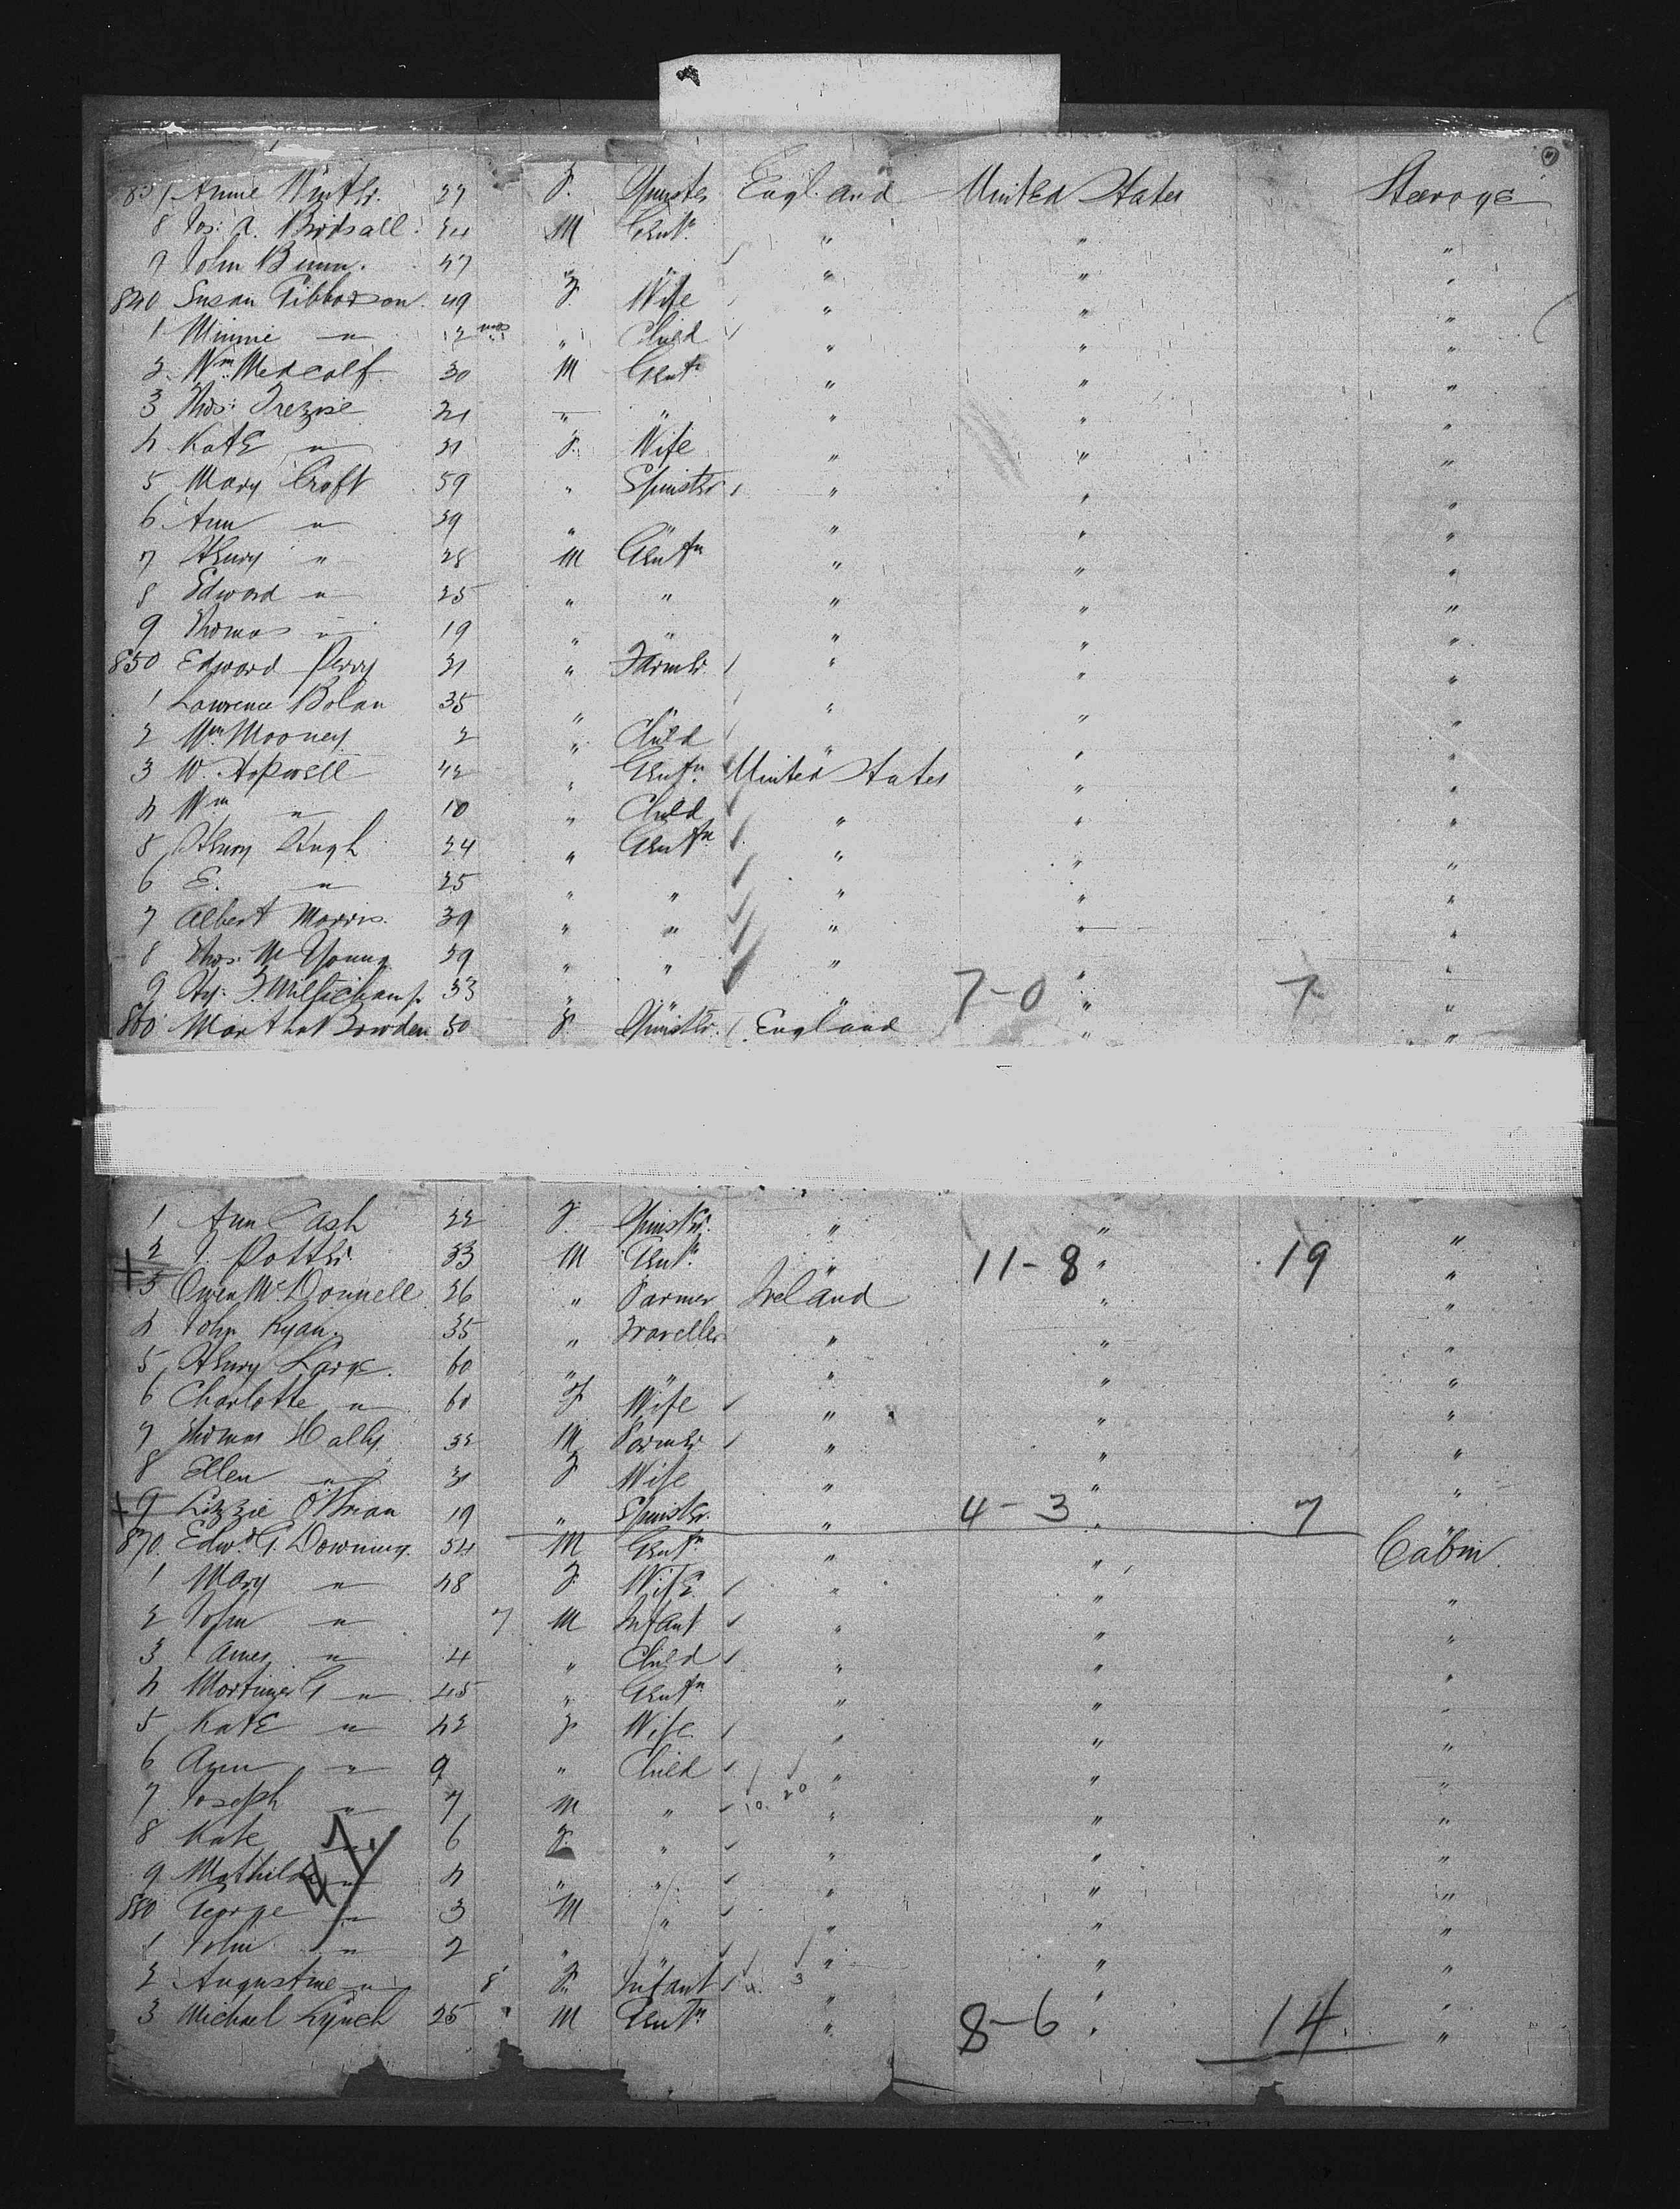 Annie Winter. 27 F. Spinster England United States Steerage
8 Jos: A. Birdsall. 24 M Gentn. " " "
9 John Bunn. 47 " " " " "
840 Susan Gibborson. 49 F Wife " " "
1 Minnie " mos " Child " " "
2 Wm. Medcalf 30 M Gentn " " "
3 Thos: Trezise 21 " " " " "
4 Kate " 21 F. Wife " " "
5 Mary Croft 59 " Spinster " " "
6 Ann " 39 " " " " "
7 Henry " 28 M Gentn " " "
8 Edward " 25 " " " " "
9 Thomas " 19 " " " " "
850 Edward Perry 31 " Farmer " " "
1 Lawrence Bolan 35 " " " " "
2 Wm Mooney 2 " Child " " "
3 W. 42 " Gentn. United States " "
4 Wm " 10 " Child " " "
5 Henry Hugh 24 " Gentn " " "
6 E. " 25 " " " " "
7 Albert Morris. 39 " " " " "
8 Thos. Young 29 " " " " "
9 33 " " " 7-0 " 7 "
860 Martha Bowden 50 F. Spinster. England " "
1 Ann Cash 22 F. Spinster. " " "
2 J. Potter 33 M Gentn. " 11-8 " 19 "
3 Owen McDonnell 26 " Farmer Ireland " "
4 John Ryan. 35 " Traveller " " "
5 Henry Large. 60 " " " " "
6 Charlotte " 60 F Wife " " "
7 Thomas Hally 32 M Farmer " " "
8 Ellen " 31 F Wife " " "
9 Lizzie O'Brian 19 " Spinster. " 4-3 " 7 "
870. Edwd. G. Downing. 54 M Gentn " " Cabin.
1 Mary " 48 F. Wife " " "
2 John " 7 M Infant " " "
3 James " 4 " Child " " "
4 Mortimer G " 45 " Gentn " " "
5 Kate " 42 F Wife " " "
6 " 9 " Child " " "
7 Joseph " 7 M " 10. 20 " " "
8 Kate " 6 F. " " " "
9 Mathilda " 4 " " " " "
880 George " 3 M " " " "
1 John " 2 " " " " "
2 Augustine " 8 F. Infant 4 3 " " "
3 Michael Lynch 25 M Gentn. " 8-6 " 14. "